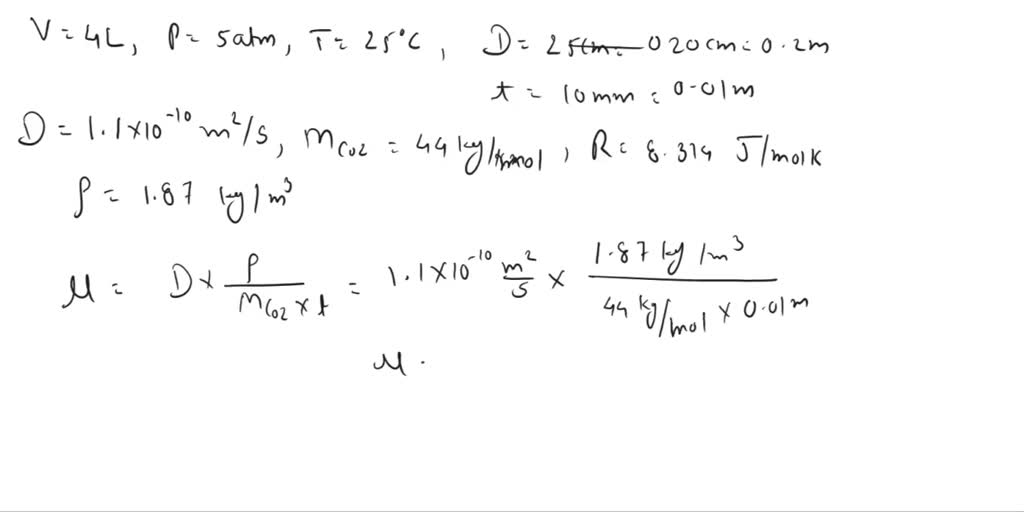 V = 4L, P = 5atm, T = 25°C, D = 20cm = 0.2m
t = 10mm = 0.01m
D = 1.1×10⁻¹⁰ m²/s, M_CO2 = 44 kg/kmol, R = 8.314 J/molK
ρ = 1.87 kg/m³
M = D × ρ / (M_CO2 × t) = 1.1×10⁻¹⁰ m²/s × 1.87 kg/m³ / (44 kg/mol × 0.01m)
M .